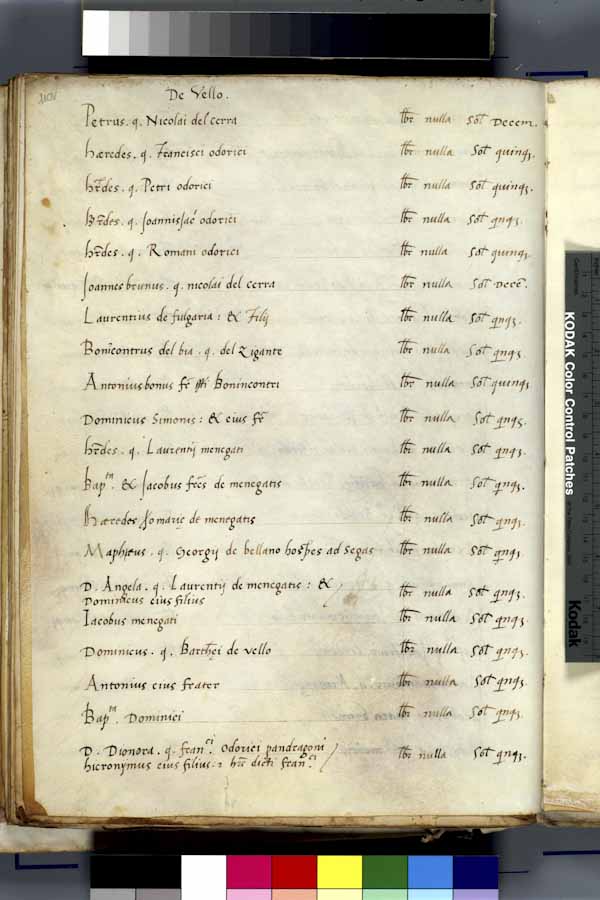 De Vello.
Petrus. q. Nicolai del cerra lbr nulla Sol Decem.
hæredes. q. Francisci odorici lbr nulla Sol quinq3.
hr̄des. q. Petri odorici lbr nulla Sol quinq3.
hr̄des. q. odorici lbr nulla Sol qnq3.
hr̄des. q. Romani odorici lbr nulla Sol quinq3.
Joannesbrunus. q. nicolai del cerra lbr nulla Sol Decē.
Laurentius de fulgaria: & Filij lbr nulla Sol qnq3.
Bonīcontrus del bia. q. del Zigante lbr nulla Sol qnq3.
Antoniusbonus Bonincontri lbr nulla Sol quinq3
Dominicus Simonis: & eius fr̄ lbr nulla Sol qnq3.
hr̄des. q. Laurentij menegati lbr nulla Sol qnq3.
Bap.ta & Jacobus fr̄es de menegatis lbr nulla Sol qnq3.
Hæredes de menegatis lbr nulla Sol qnq3.
Mapheus. q. Georgij de bellano ad Segas lbr nulla Sol qnq3.
D. Angela. q. Laurentij de menegatis: &
Dominicus eius filius lbr nulla Sol qnq3.
Iacobus menegati lbr nulla Sol qnq3.
Dominicus. q. Barthei de vello lbr nulla Sol qnq3.
Antonius eius frater lbr nulla Sol qnq3.
Bap.ta Dominici lbr nulla Sol qnq3.
D. Dionora. q. fran.ci odorici pandragoni
hieronymus eius filius: dicti fran.ci lbr nulla Sol qnq3.
KODAK Color Control Patches
Kodak